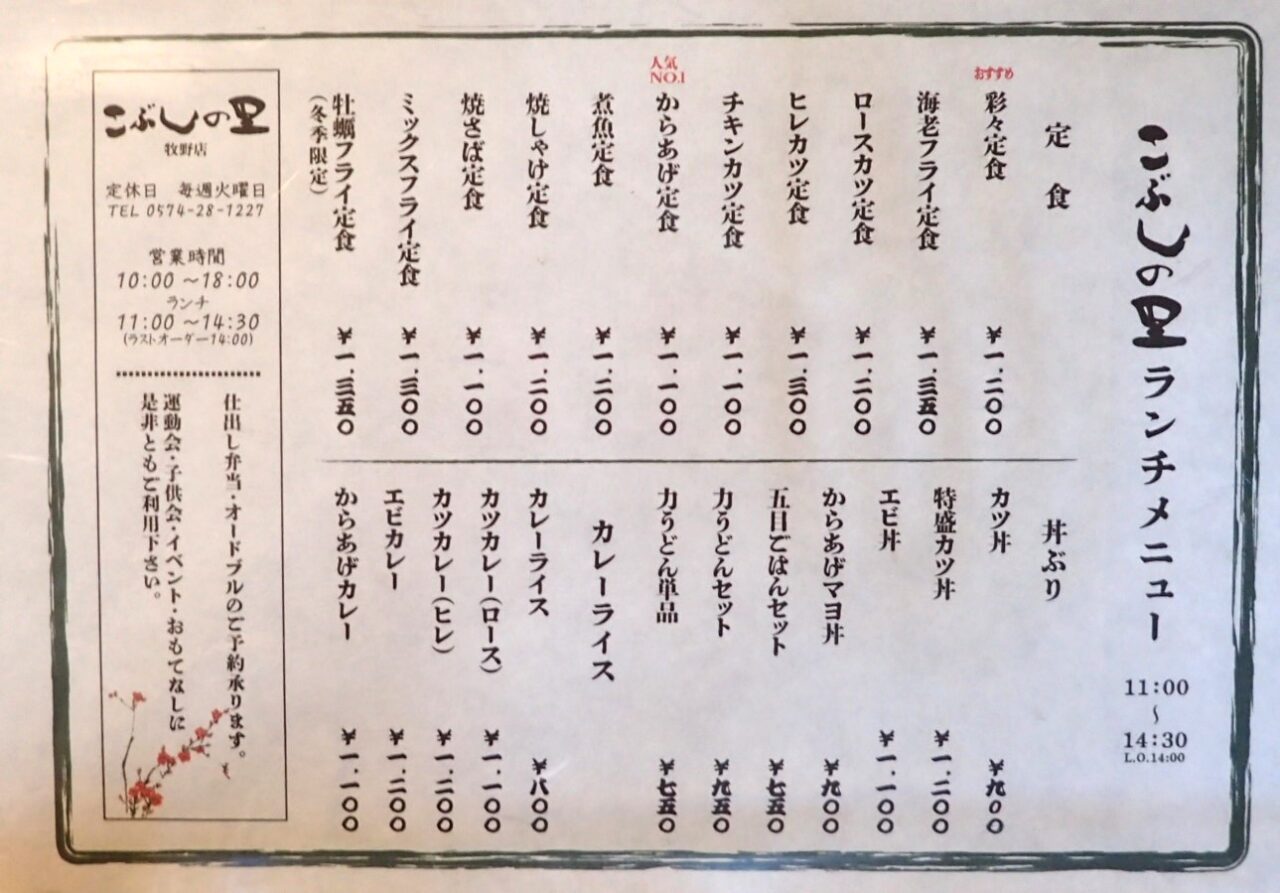 こぶしの里 ランチメニュー
11:00
～
14:30
L.O.14:00
定食
おすすめ
彩々定食 ¥一.二〇〇
海老フライ定食 ¥一.三五〇
ロースカツ定食 ¥一.二〇〇
ヒレカツ定食 ¥一.三〇〇
チキンカツ定食 ¥一.一〇〇
人気
NO.1
からあげ定食 ¥一.一〇〇
煮魚定食 ¥一.二〇〇
焼しゃけ定食 ¥一.二〇〇
焼さば定食 ¥一.一〇〇
ミックスフライ定食 ¥一.三〇〇
牡蠣フライ定食 ¥一.三五〇
(冬季限定)
丼ぶり
カツ丼 ¥九〇〇
特盛カツ丼 ¥一.二〇〇
エビ丼 ¥一.一〇〇
からあげマヨ丼 ¥九〇〇
五目ごはんセット ¥七五〇
力うどんセット ¥九五〇
力うどん単品 ¥七五〇
カレーライス
カレーライス ¥八〇〇
カツカレー(ロース) ¥一.一〇〇
カツカレー(ヒレ) ¥一.二〇〇
エビカレー ¥一.二〇〇
からあげカレー ¥一.一〇〇
こぶしの里
牧野店
定休日 毎週火曜日
TEL 0574-28-1227
営業時間
10:00 ～18:00
ランチ
11:00 ～14:30
(ラストオーダー14:00)
仕出し弁当・オードブルのご予約承ります。
運動会・子供会・イベント・おもてなしに
是非ともご利用下さい。